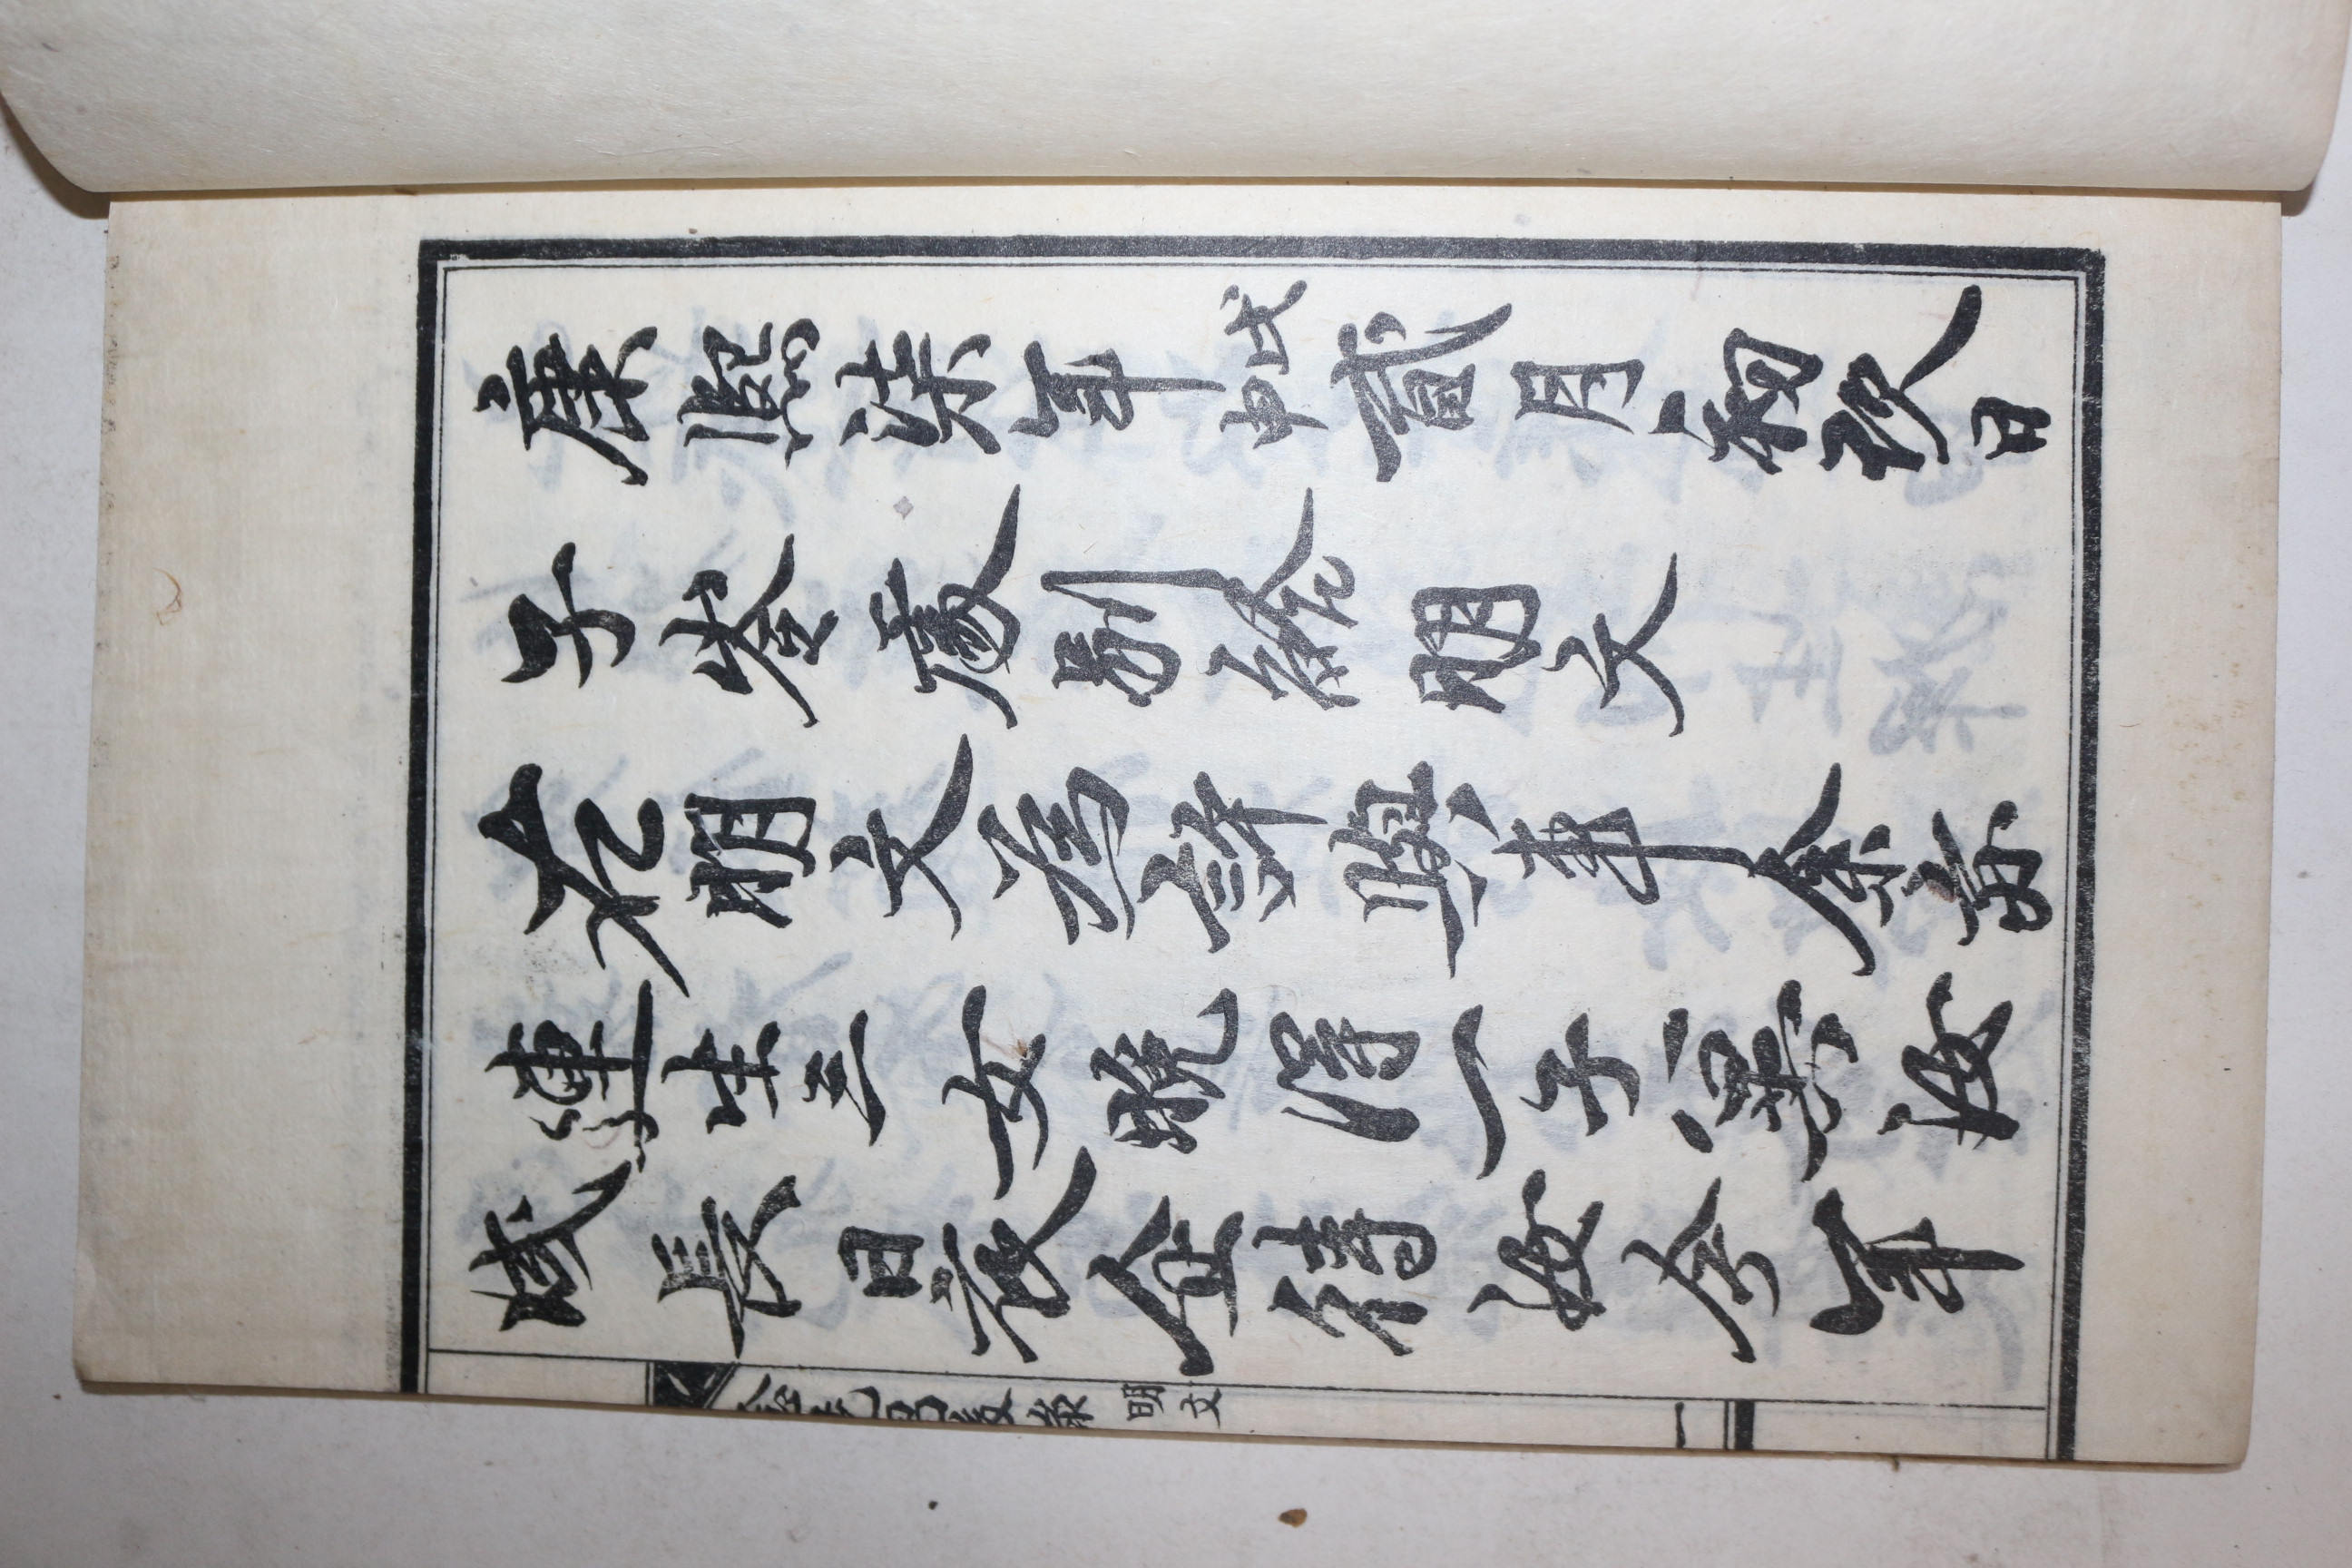 康熙柒年戊申貳月初玖日
子岺處別給明文
右明文為許與事余亦
連生三女晚得一子兾汝
成長日夜企待汝今年
明文
一